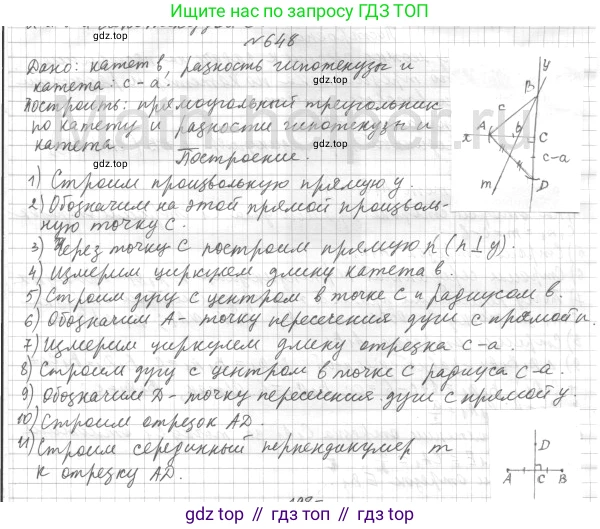 Ищите нас по запросу ГДЗ ТОП
№648
Дано: катет в, разность гипотенузы и
катета: с-а.
Построить: прямоугольный треугольник
по катету и разности гипотенузы и
катета.
Построение.
1) Строим произвольную прямую y.
2) Обозначим на этой прямой произволь-
ную точку С.
3) Через точку С построим прямую n (n⊥y).
4) Измерим циркулем длину катета в.
5) Строим дугу с центром в точке С и радиусом в.
6) Обозначим А - точку пересечения дуги с прямой n.
7) Измерим циркулем длину отрезка с-а.
8) Строим дугу с центром в точке С радиуса с-а.
9) Обозначим D - точку пересечения дуги с прямой y.
10) Строим отрезок AD.
11) Строим серединный перпендикуляр m
к отрезку AD.
y
B
c
x A в C
c-a
m D
D
A C B
gdz.top
gdz.top
gdz.top
gdz.top
gdz.top
gdz.top
gdz.top
gdz.top
gdz.top // gdz.top // gdz.top // gdz.top // gdz.top